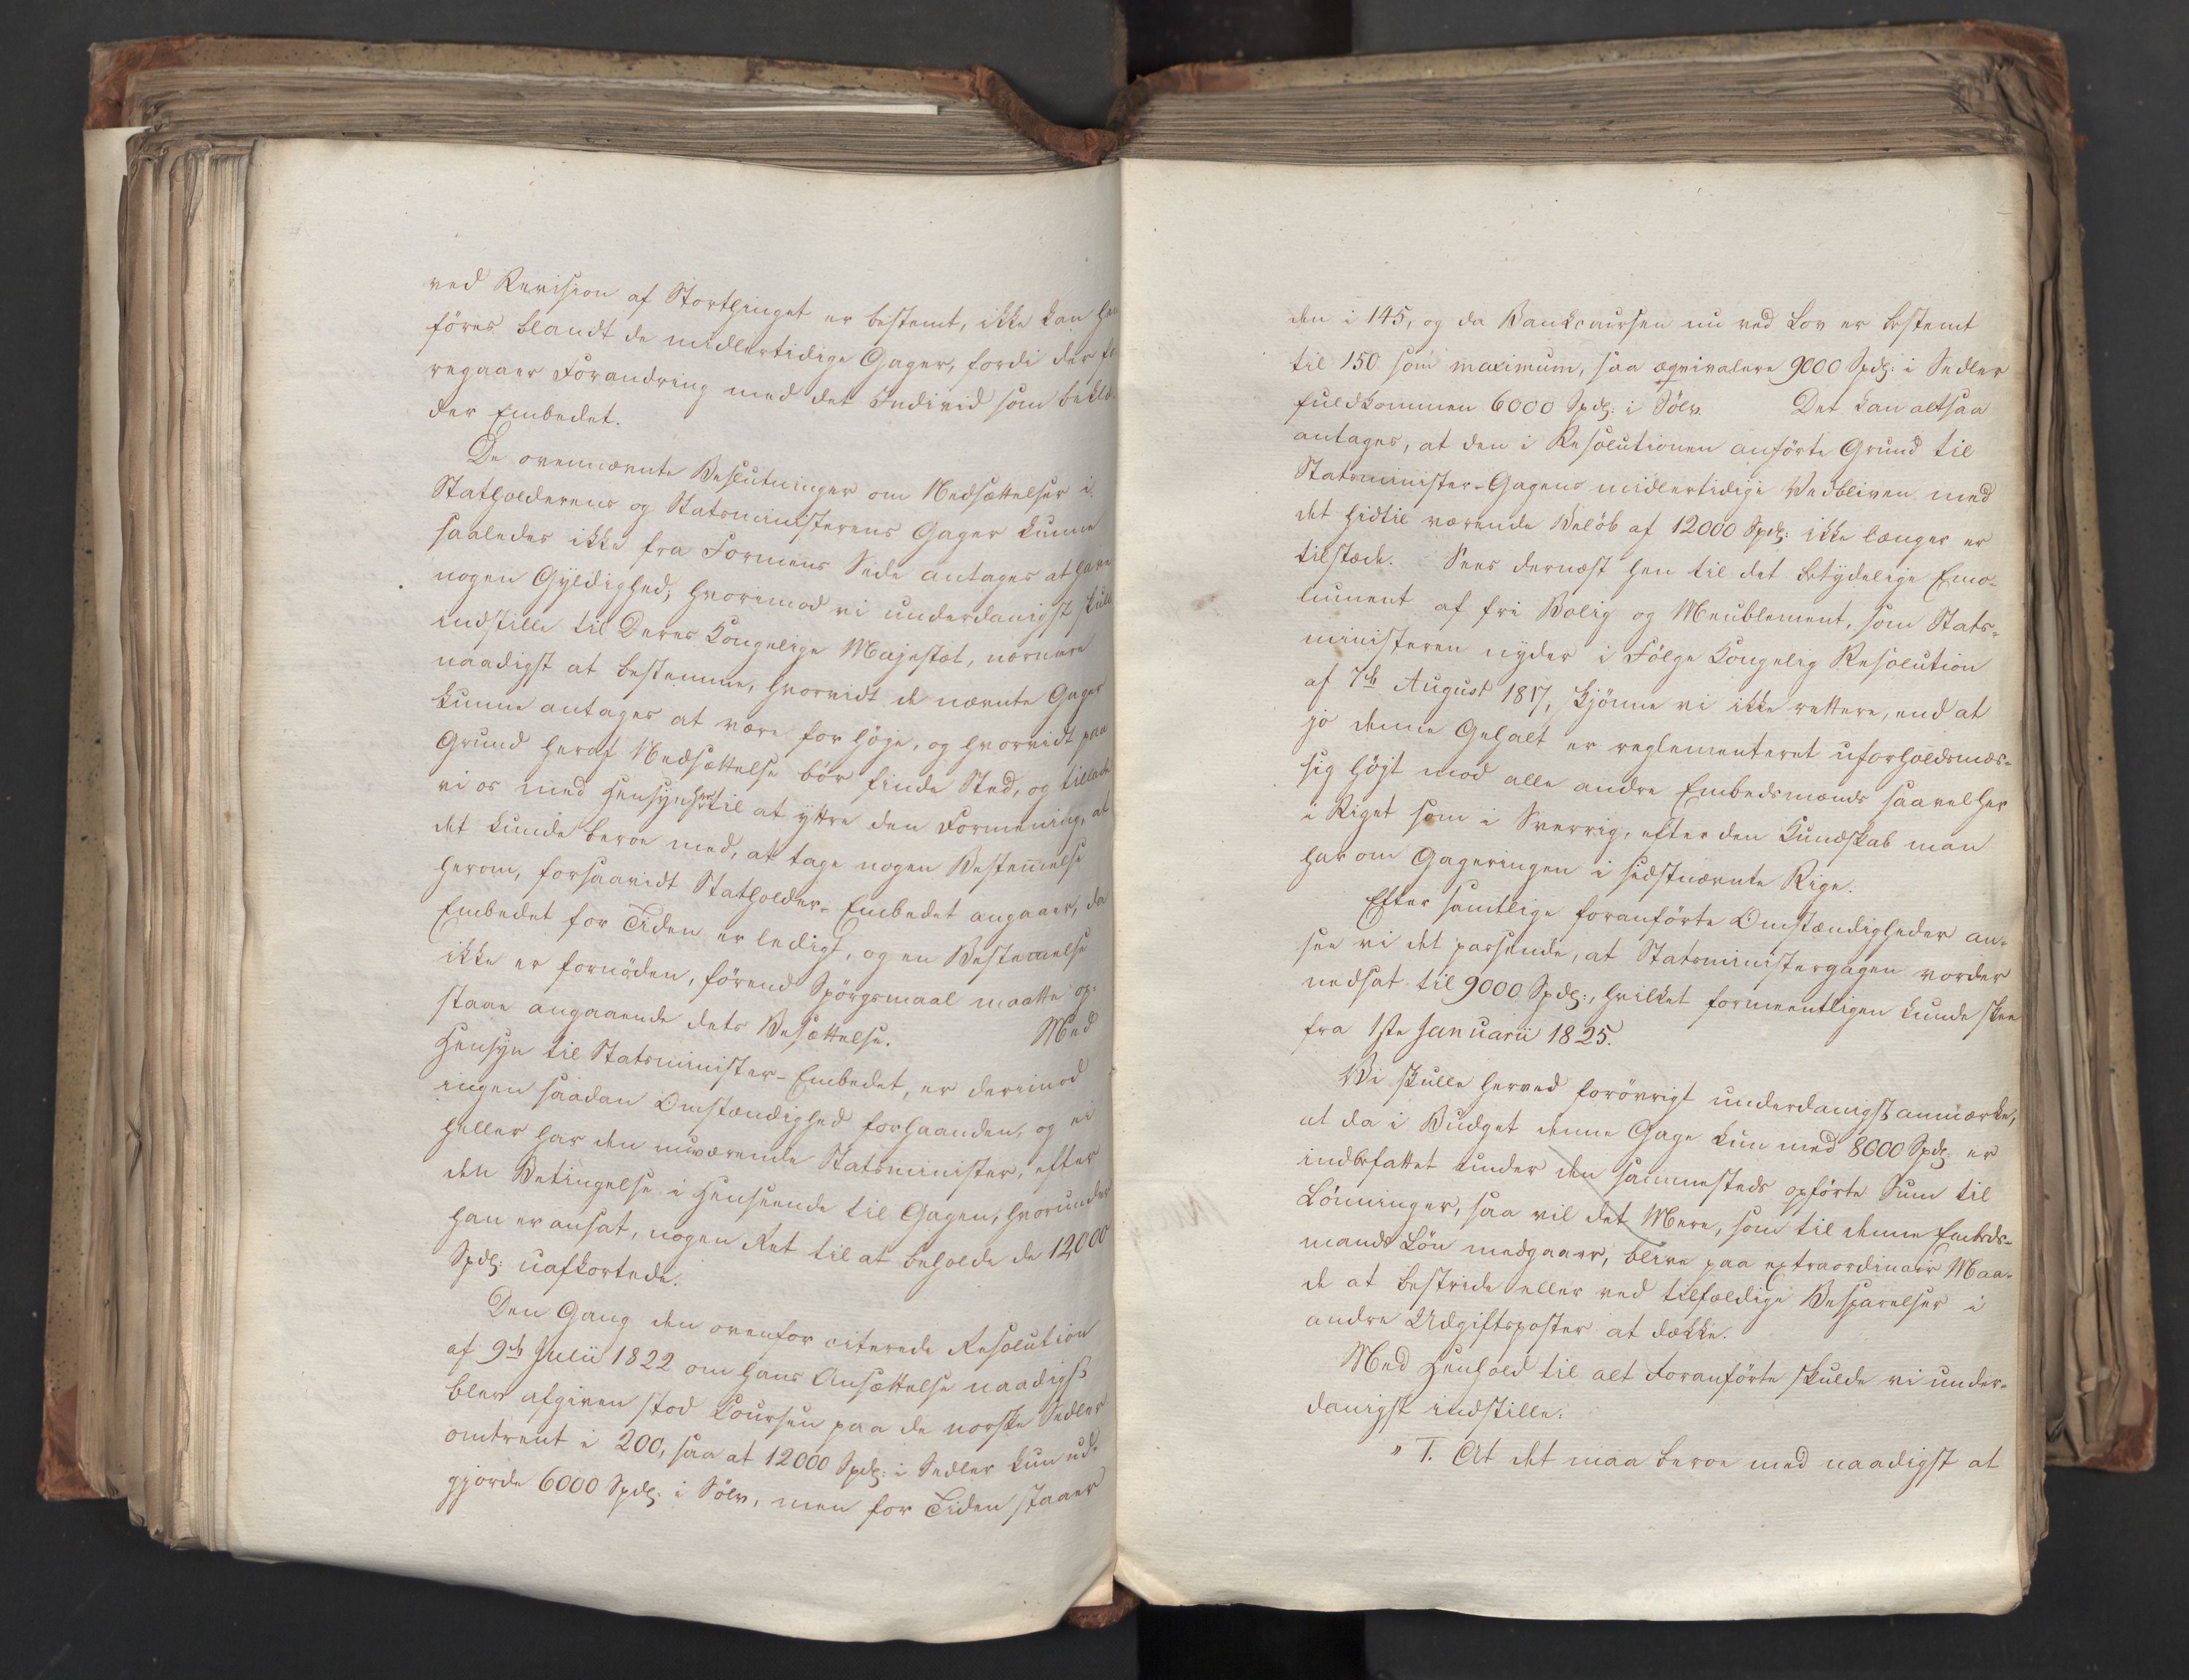 ved Revision af Storthinget er bestemt, ikke kan hen
föres blandt de midlertidige Gager, fordi der fo
regaaer Forandring med det Individ som beklæ
der Embedet.
De ovennævnte Beslutninger om Nedsættelser i
Statholderens og Statsministerens Gager kunne
saaledes ikke fra Formens Side antages at have
nogen Gyldighed; hvorimod vi underdanigst skulle
indstille til Deres Kongelige Majestæt, nærmere
naadigst at bestemme, hvorvidt de nævnte Gager
kunne antages at være for höje, og hvorvidt paa
Grund heraf Nedsættelse bör finde Sted, og tillade
vi os med Hensyn hertil at yttre den Formening, at
det kunde beroe med, at tage nogen Bestemmelse
herom, forsaavidt Statholder-Embedet angaaer, da
Embedet for Tiden er ledigt, og en Bestemmelse
ikke er fornöden, förend Spörgsmaal maatte op-
staae angaaende dets Besættelse. Med
Hensyn til Statsminister-Embedet, er derimod
ingen saadan Omstændighed forhaanden, og ei
heller har den nuværende Statsminister, efter
den Betingelse i Henseende til Gagen, hvorunder
han er ansat, nogen Ret til at beholde de 12000
Spdlr: uafkortede.
Den Gang den ovenfor citerede Resolution
af 9de Julii 1822 om hans Ansættelse naadigst
blev afgiven stod Coursen paa de norske Sedler
omtrent i 200, saa at 12000 Spdlr: i Sedler kun ud-
gjorde 6000 Spdlr: i Sölv, men for Tiden staaer
den i 145, og da Bankcoursen nu ved Lov er bestemt
til 150 som maximum, saa æqvivalere 9000 Spdlr: i Sedler
fuldkommen 6000 Spdlr: i Sölv. Det kan altsaa
antages, at den i Resolutionen anförte Grund til
Statsminister-Gagens midlertidige Vedbliven med
det hidtil værende Belöb af 12000 Spdlr: ikke længer er
tilstæde. Sees dernæst hen til det betydelige Emo-
lument af fri Bolig og Meublement, som Stats-
ministeren nyder i Fölge Kongelig Resolution
af 7de August 1817, skjönne vi ikke rettere, end at
jo denne Gehalt er reglementeret uforholdsmæs-
sig höjt mod alle andre Embedsmænds saavel her
i Riget som i Sverrig, efter den Kundskab man
har om Gageringen i sidstnævnte Rige.
Efter samtlige foranförte Omstændigheder an-
see vi det passende, at Statsministergagen vorder
nedsat til 9000 Spdlr:, hvilket formeentligen kunde skee
fra 1ste Januarii 1825.
Vi skulle herved forövrigt underdanigst anmærke,
at da i Budget denne Gage kun med 8000 Spdlr: er
indbefattet under den sammesteds opförte Sum til
Lönninger, saa vil det Mere, som til denne Embeds-
mands Lön medgaaer, blive paa extraordinair Maa-
de at bestride eller ved tilfældige Besparelser i
andre Udgiftsposter at dække.
Med Henhold til alt Foranförte skulde vi under-
danigst indstille:
" I. At det maa beroe med naadigst at